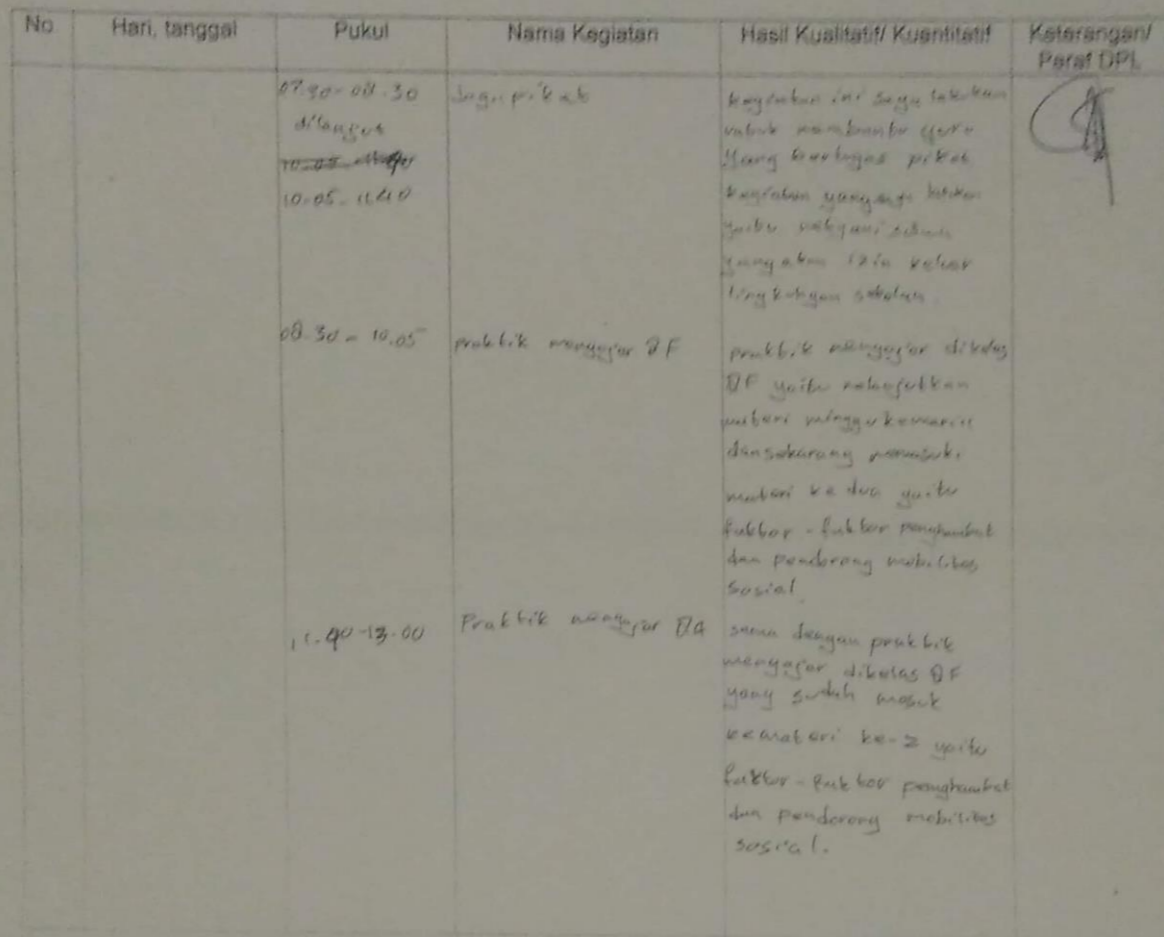 No
Hari, tanggal
Pukul
Nama Kegiatan
Hasil Kualitatif/ Kuantitatif
Keterangan/
Paraf DPL
07.30-08.30
dilanjut
10.05
10.05-11.40
Jaga piket
kegiatan ini saya lakukan
untuk membantu guru
yang bertugas piket
kegiatan yang saya lakukan
yaitu
yang akan izin keluar
lingkungan sekolah
08.30-10.05
praktik mengajar 8F
praktik mengajar dikelas
8F yaitu melanjutkan
materi minggu kemarin
dan sekarang memasuki
materi ke dua yaitu
faktor-faktor penghambat
dan pendorong mobilitas
sosial.
11.40-13.00
Praktik mengajar
sama dengan praktik
mengajar dikelas 8F
yang sudah masuk
kemateri ke-2 yaitu
faktor-faktor penghambat
dan pendorong mobilitas
sosial.